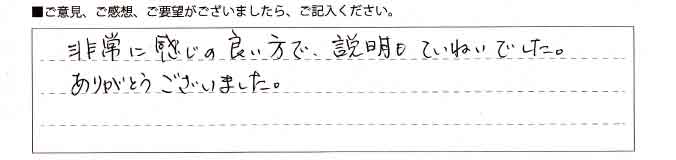 ■ご意見、ご感想、ご要望がございましたら、ご記入ください。
非常に感じの良い方で、説明もていねいでした。
ありがとうございました。